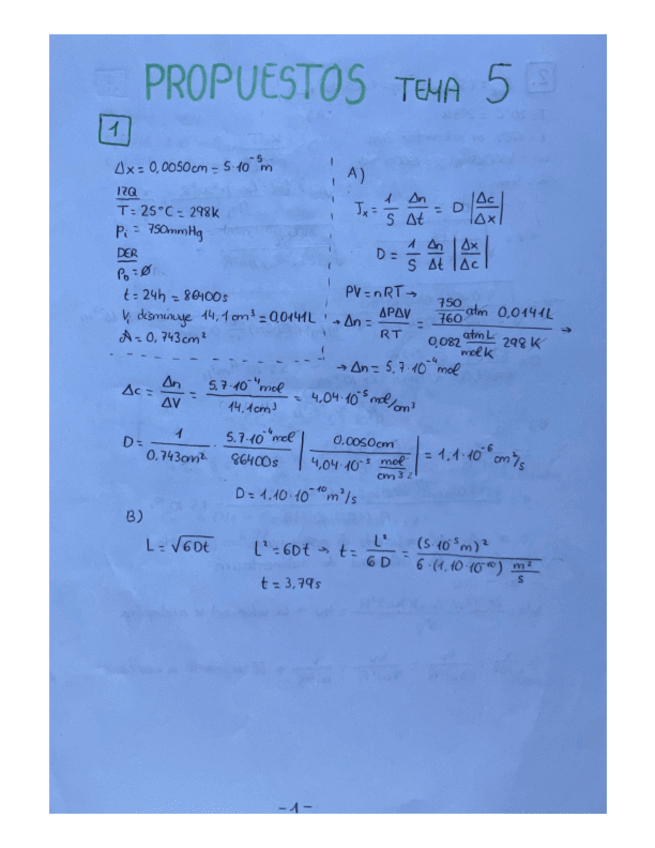 PROPUESTOS TEMA 5
1.
Δx = 0,0050cm = 5·10⁻⁵m
IZQ
T = 25°C = 298K
Pi = 750mmHg
DER
P₀ = ∅
t = 24h = 86400s
Vi disminuye 14,1cm³ = 0,0141L
A = 0,743cm²
A)
Jx = 1/S Δn/Δt = D |Δc/Δx|
D = 1/S Δn/Δt |Δx/Δc|
PV = nRT →
→ Δn = ΔPΔV/RT = (750/760 atm 0,0141L)/(0,082 atmL/molK 298K) →
→ Δn = 5,7·10⁻⁴mol
Δc = Δn/ΔV = 5,7·10⁻⁴mol/14,1cm³ = 4,04·10⁻⁵ mol/cm³
D = 1/0,743cm² · 5,7·10⁻⁴mol/86400s |0,0050cm/4,04·10⁻⁵ mol/cm³| = 1,1·10⁻⁶ cm²/s
D = 1,10·10⁻¹⁰m²/s
B)
L = √6Dt L² = 6Dt → t = L²/6D = (5·10⁻⁵m)²/6·(1,10·10⁻¹⁰) m²/s
t = 3,79s
-1-